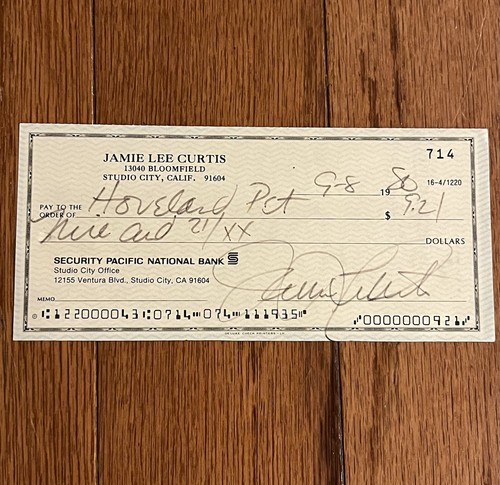 JAMIE LEE CURTIS 714
13040 BLOOMFIELD
STUDIO CITY, CALIF. 91604
9-8 19 80 16-4/1220
PAY TO THE ORDER OF Hoveland Pct $ 9.21
Nine and 21/XX DOLLARS
SECURITY PACIFIC NATIONAL BANK
Studio City Office
12155 Ventura Blvd., Studio City, CA 91604
MEMO
122000043 0714 074 111935 0000000921
DELUXE CHECK PRINTERS - LA